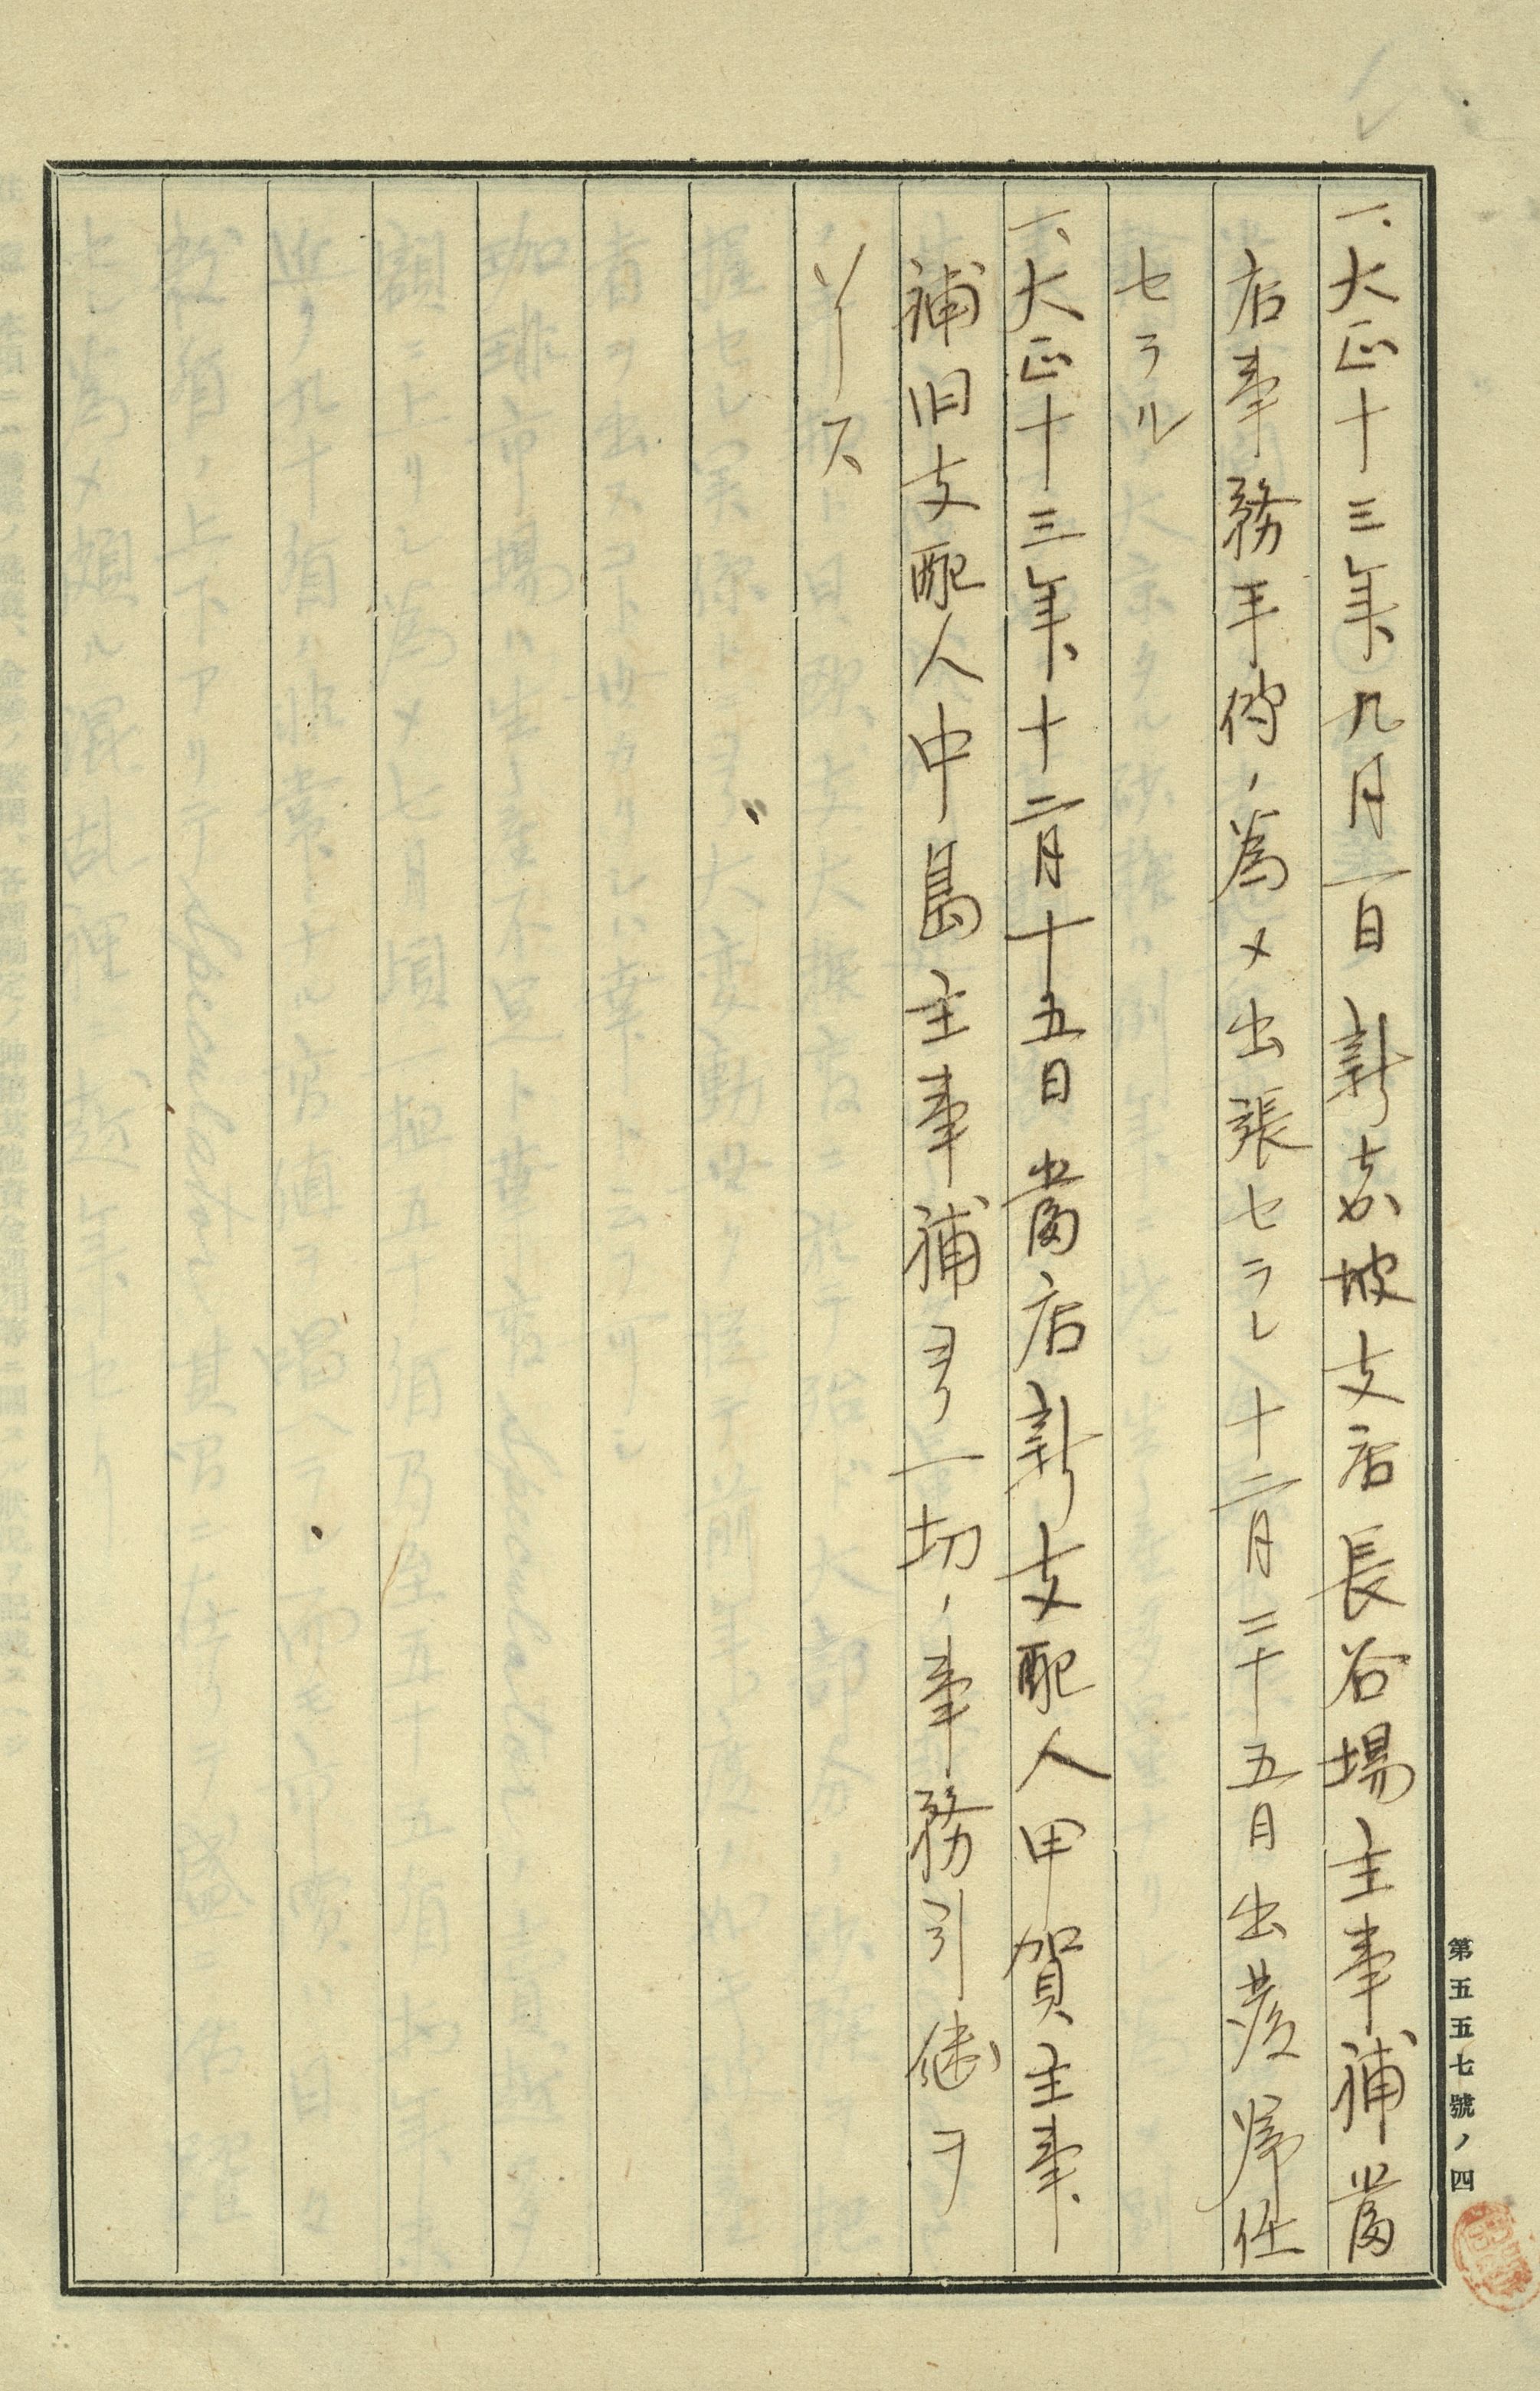 一、大正十三年九月一日新嘉坡支店長谷場主事補當
店事務手傳ノ為メ出張セラレ十二月二十五日出發帰任
セラル
一、大正十三年十二月十五日當店新支配人甲賀主事
補旧支配人中島主事補ヨリ一切ノ事務引継ヲ
了ス
第五五七號ノ四